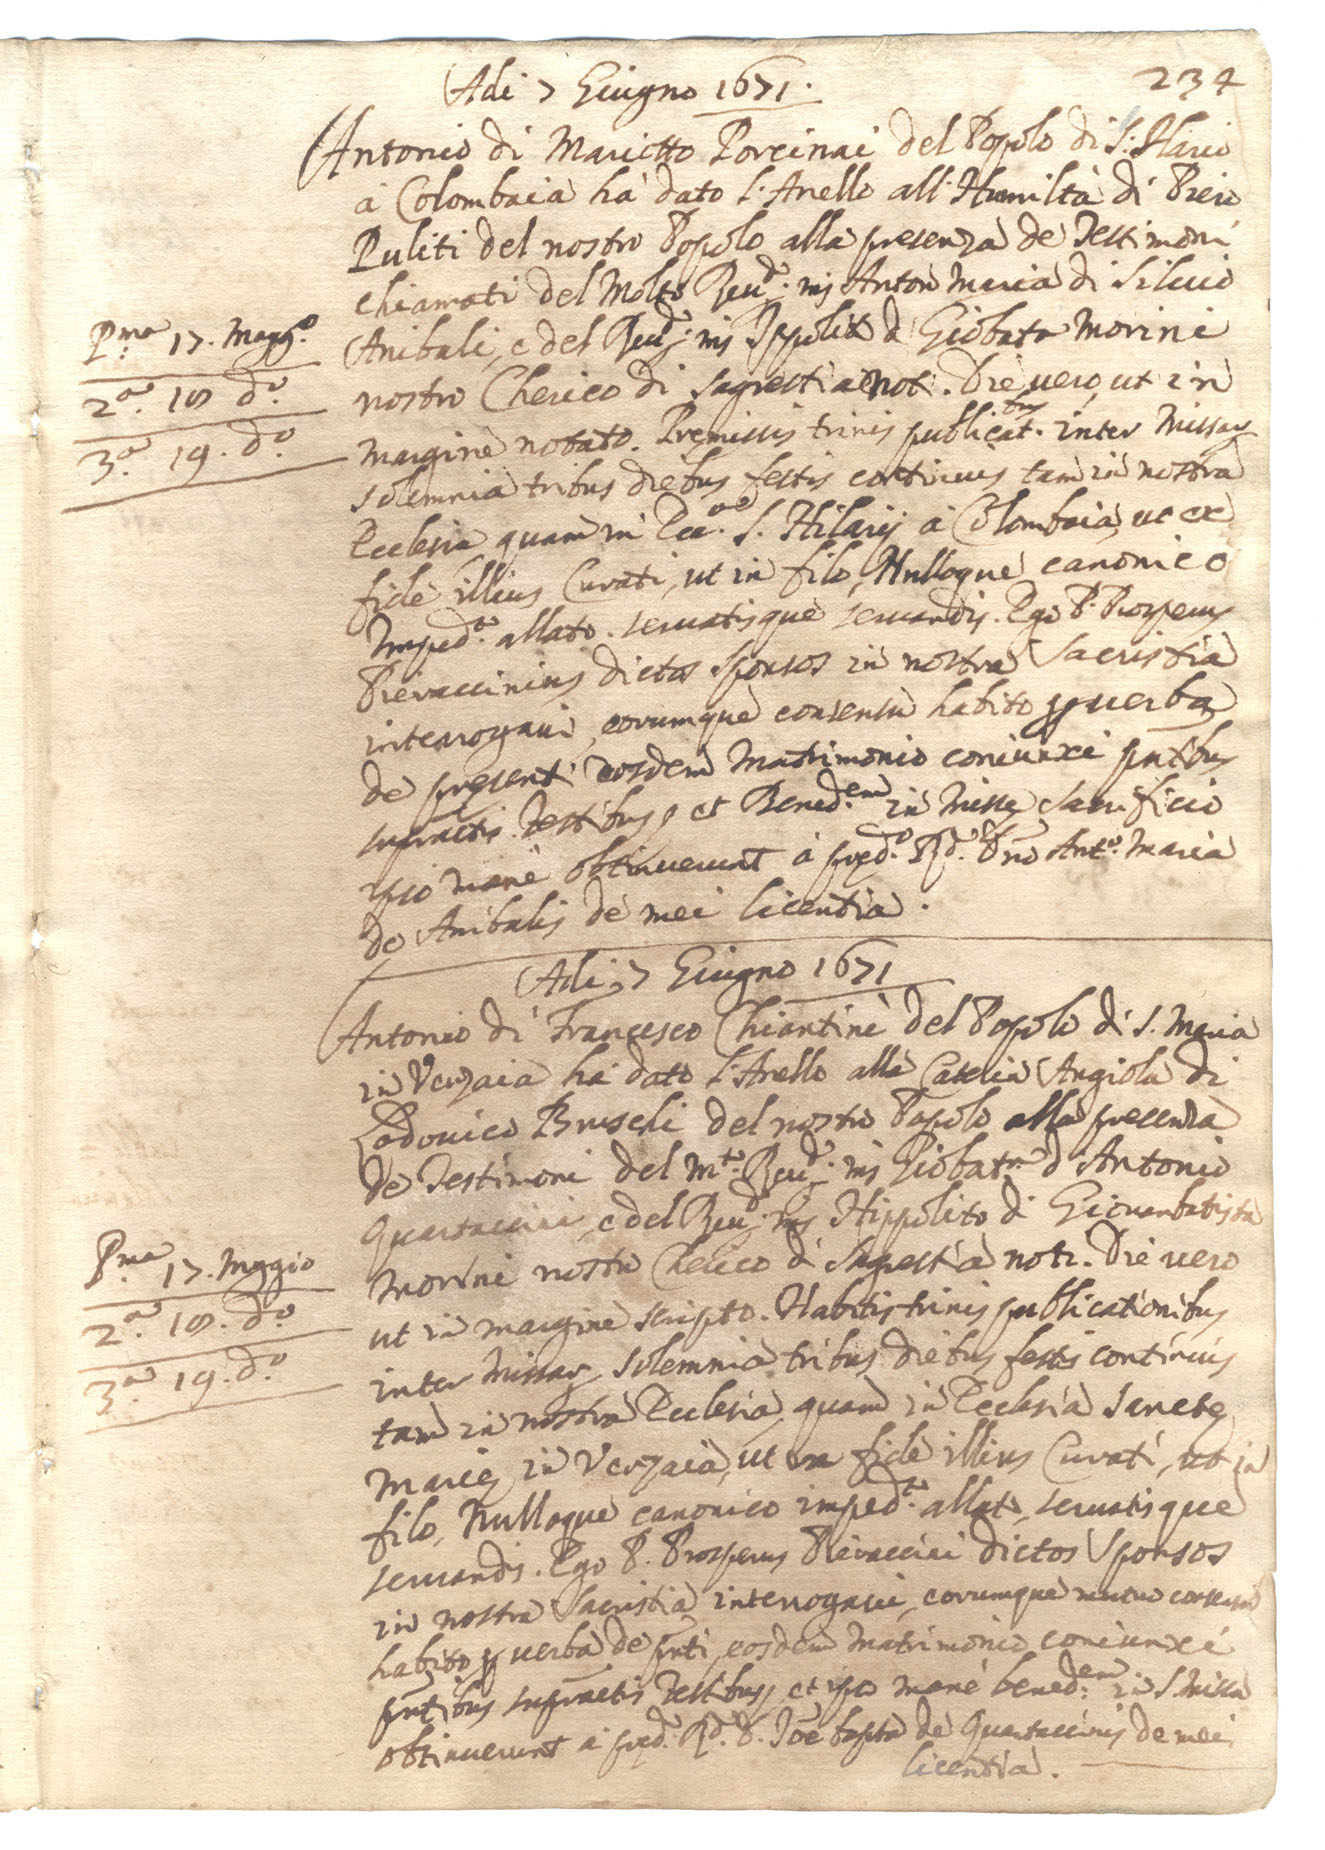 234
Adi 7 Giugno 1671.
Antonio di Mariotto Porcinai del Popolo di S. Ilario
a Colombaia ha dato l'Anello all'Humiltà di Piero
Puliti del nostro Popolo alla presenza de Testimoni
chiamati del Molto Reu.do mis Anton Maria di Siluio
Anibali, e del Reu.do mis Ippolito d Giobata Morini
nostro Cherico di sagrestia noti. Die uero, ut in
margine notato. Premissis trinis publicat.bus inter Missar
solemnia tribus diebus festis continuis tam in nostra
Ecclesia quam in Ecc.a S. Hilarij a Colombaia, ut ex
fide illius Curati, ut in filo, Nulloque canonico
Imped.to allato. seruatisque seruandis. Ego P. Prosperus
Pieraccinius dictos sponsos in nostra Sacristia
interrogaui, eorumque consensu habito p uerba
de presenti eosdem Matrimonio coniunxi pntibus
supractis Testibus, et Bened.em in Misse sacrificio
ipso mane obtinuerunt a pred.o Rd. Dno Ant.o Maria
de Anibalis de mei licentia.
P.ma 17. Magg.o
2.a 18 d.o
3.a 19. d.o
Adi 7 Giugno 1671
Antonio di Francesco Chiantini del Popolo di S. Maria
in Verzaia ha dato l'Anello alla Angiola di
Lodouico Bruschi del nostro Popolo alla presenza
de Testimoni del M.to Reu.do mis Giobata d Antonio
Quartaccini, e del Reu.do mis Hippolito d Giouanbatista
Morini nostro Cherico d Sagrestia noti. Die uero
ut in margine scripto. Habitis trinis publicationibus
inter Missar solemnia tribus diebus festis continuis
tam in nostra Ecclesia, quam in Ecclesia Sancte
Marie in Verzaia, ut ex fide illius Curati, ut in
filo, Nulloque canonico imped.to allato, seruatisque
seruandis. Ego P. Prosperus Pieraccini dictos Sponsos
in nostra Sacristia interrogaui, eorumque mutuo consensu
habito p uerba de pnti, eosdem Matrimonio coniunxi
pntibus supractis Testibus, et ipso mane bened.em in S. Missa
obtinuerunt a pred.o Rd. D. Joe bapta de Quartaccinis de mei
licentia.
P.ma 17. Maggio
2.a 18. d.o
3.a 19. d.o